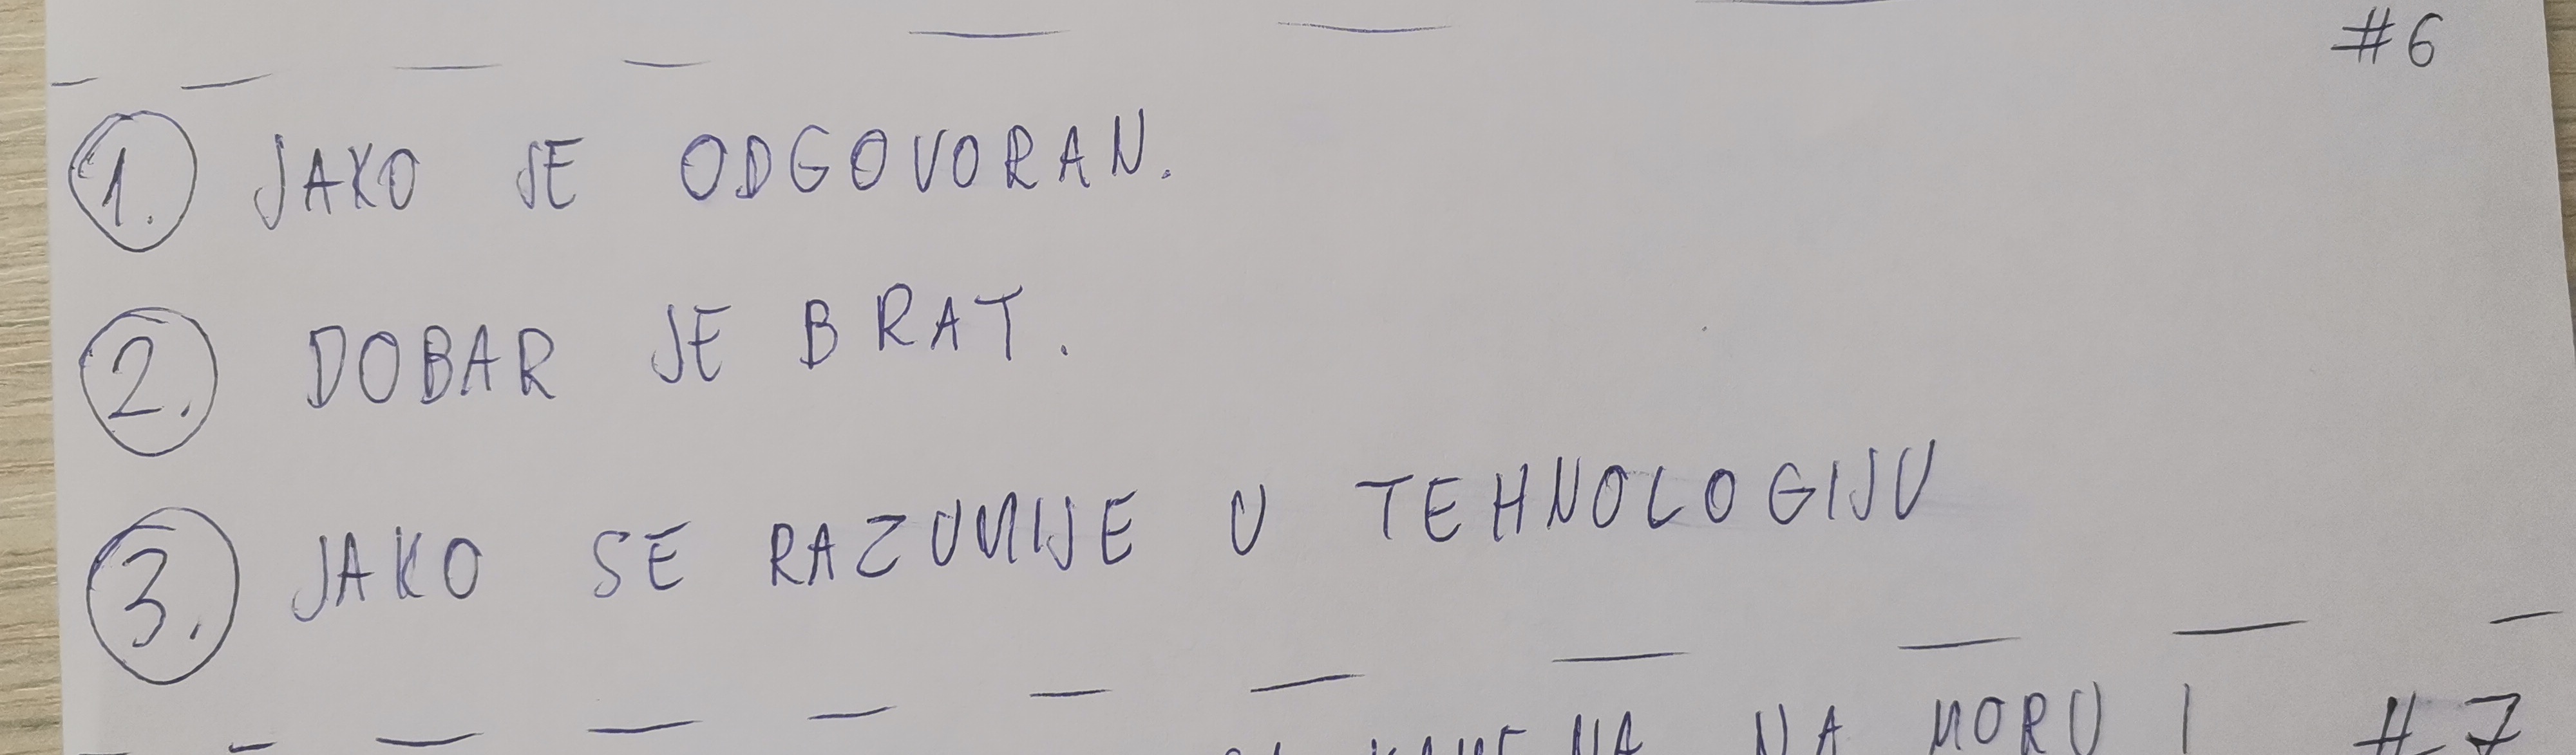 #6
1. JAKO JE ODGOVORAN.
2. DOBAR JE BRAT.
3. JAKO SE RAZUMIJE U TEHNOLOGIJU
NA MORU I #7